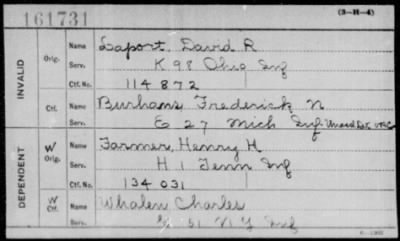 161731
(3-H-4)
INVALID
Orig. Name Laport, David R
Serv. K 98 Ohio Inf
Ctf. No. 114872
Ctf. Name Burhans Frederick N
Serv. E 27 Mich Inf Unassd Det VRC
DEPENDENT
W Orig. Name Farmer, Henry H
Serv. H 1 Tenn Inf
Ctf. No. 134031
W Ctf. Name Whalen Charles
51 N Y Inf